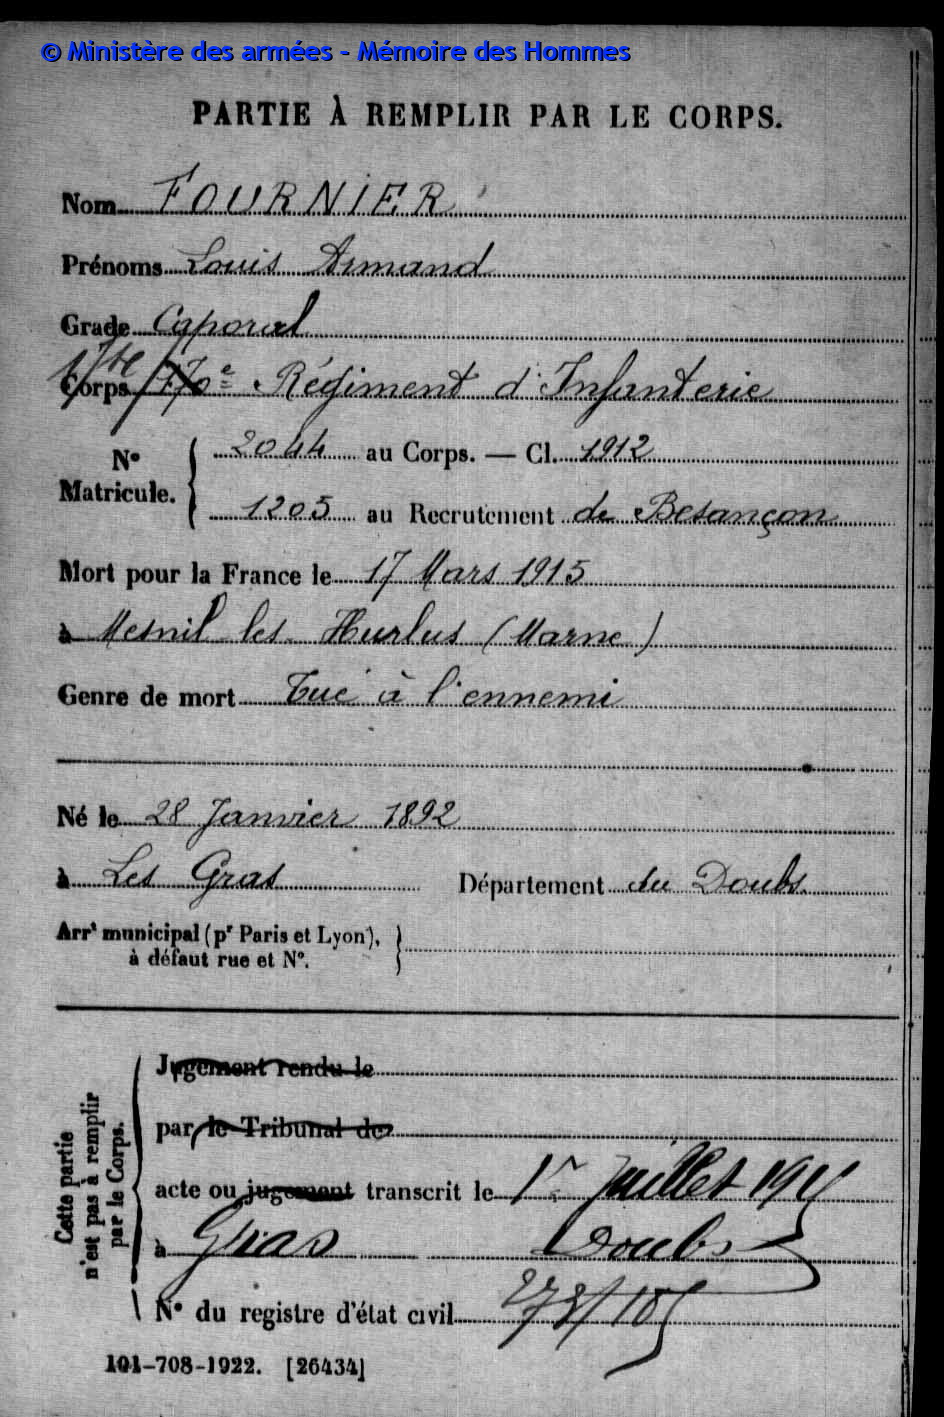 © Ministère des armées - Mémoire des Hommes
PARTIE À REMPLIR PAR LE CORPS.
Nom FOURNIER
Prénoms Louis Armand
Grade Caporal
Corps 170e Régiment d'Infanterie
No Matricule. { 2044 au Corps. — Cl. 1912
1205 au Recrutement de Besançon
Mort pour la France le 17 Mars 1915
à Mesnil les Hurlus (Marne)
Genre de mort Tué à l'ennemi
Né le 28 Janvier 1892
à Les Gras Département du Doubs
Arrt municipal (pr Paris et Lyon),
à défaut rue et No.
Cette partie n'est pas à remplir par le Corps.
Jugement rendu le
par le Tribunal de
acte ou jugement transcrit le 1er Juillet
à Gras Doubs
No du registre d'état civil
101-708-1922. [26434]